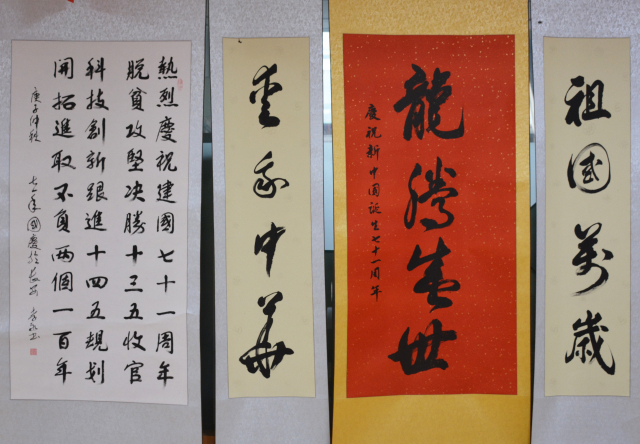 祖國萬歲
龍騰盛世
慶祝新中國誕生七十一周年
愛我中華
熱烈慶祝建國七十一周年
脫貧攻堅决勝十三五收官
科技創新跟進十四五規划
開拓進取不負两個一百年
庚子仲秋
國慶於